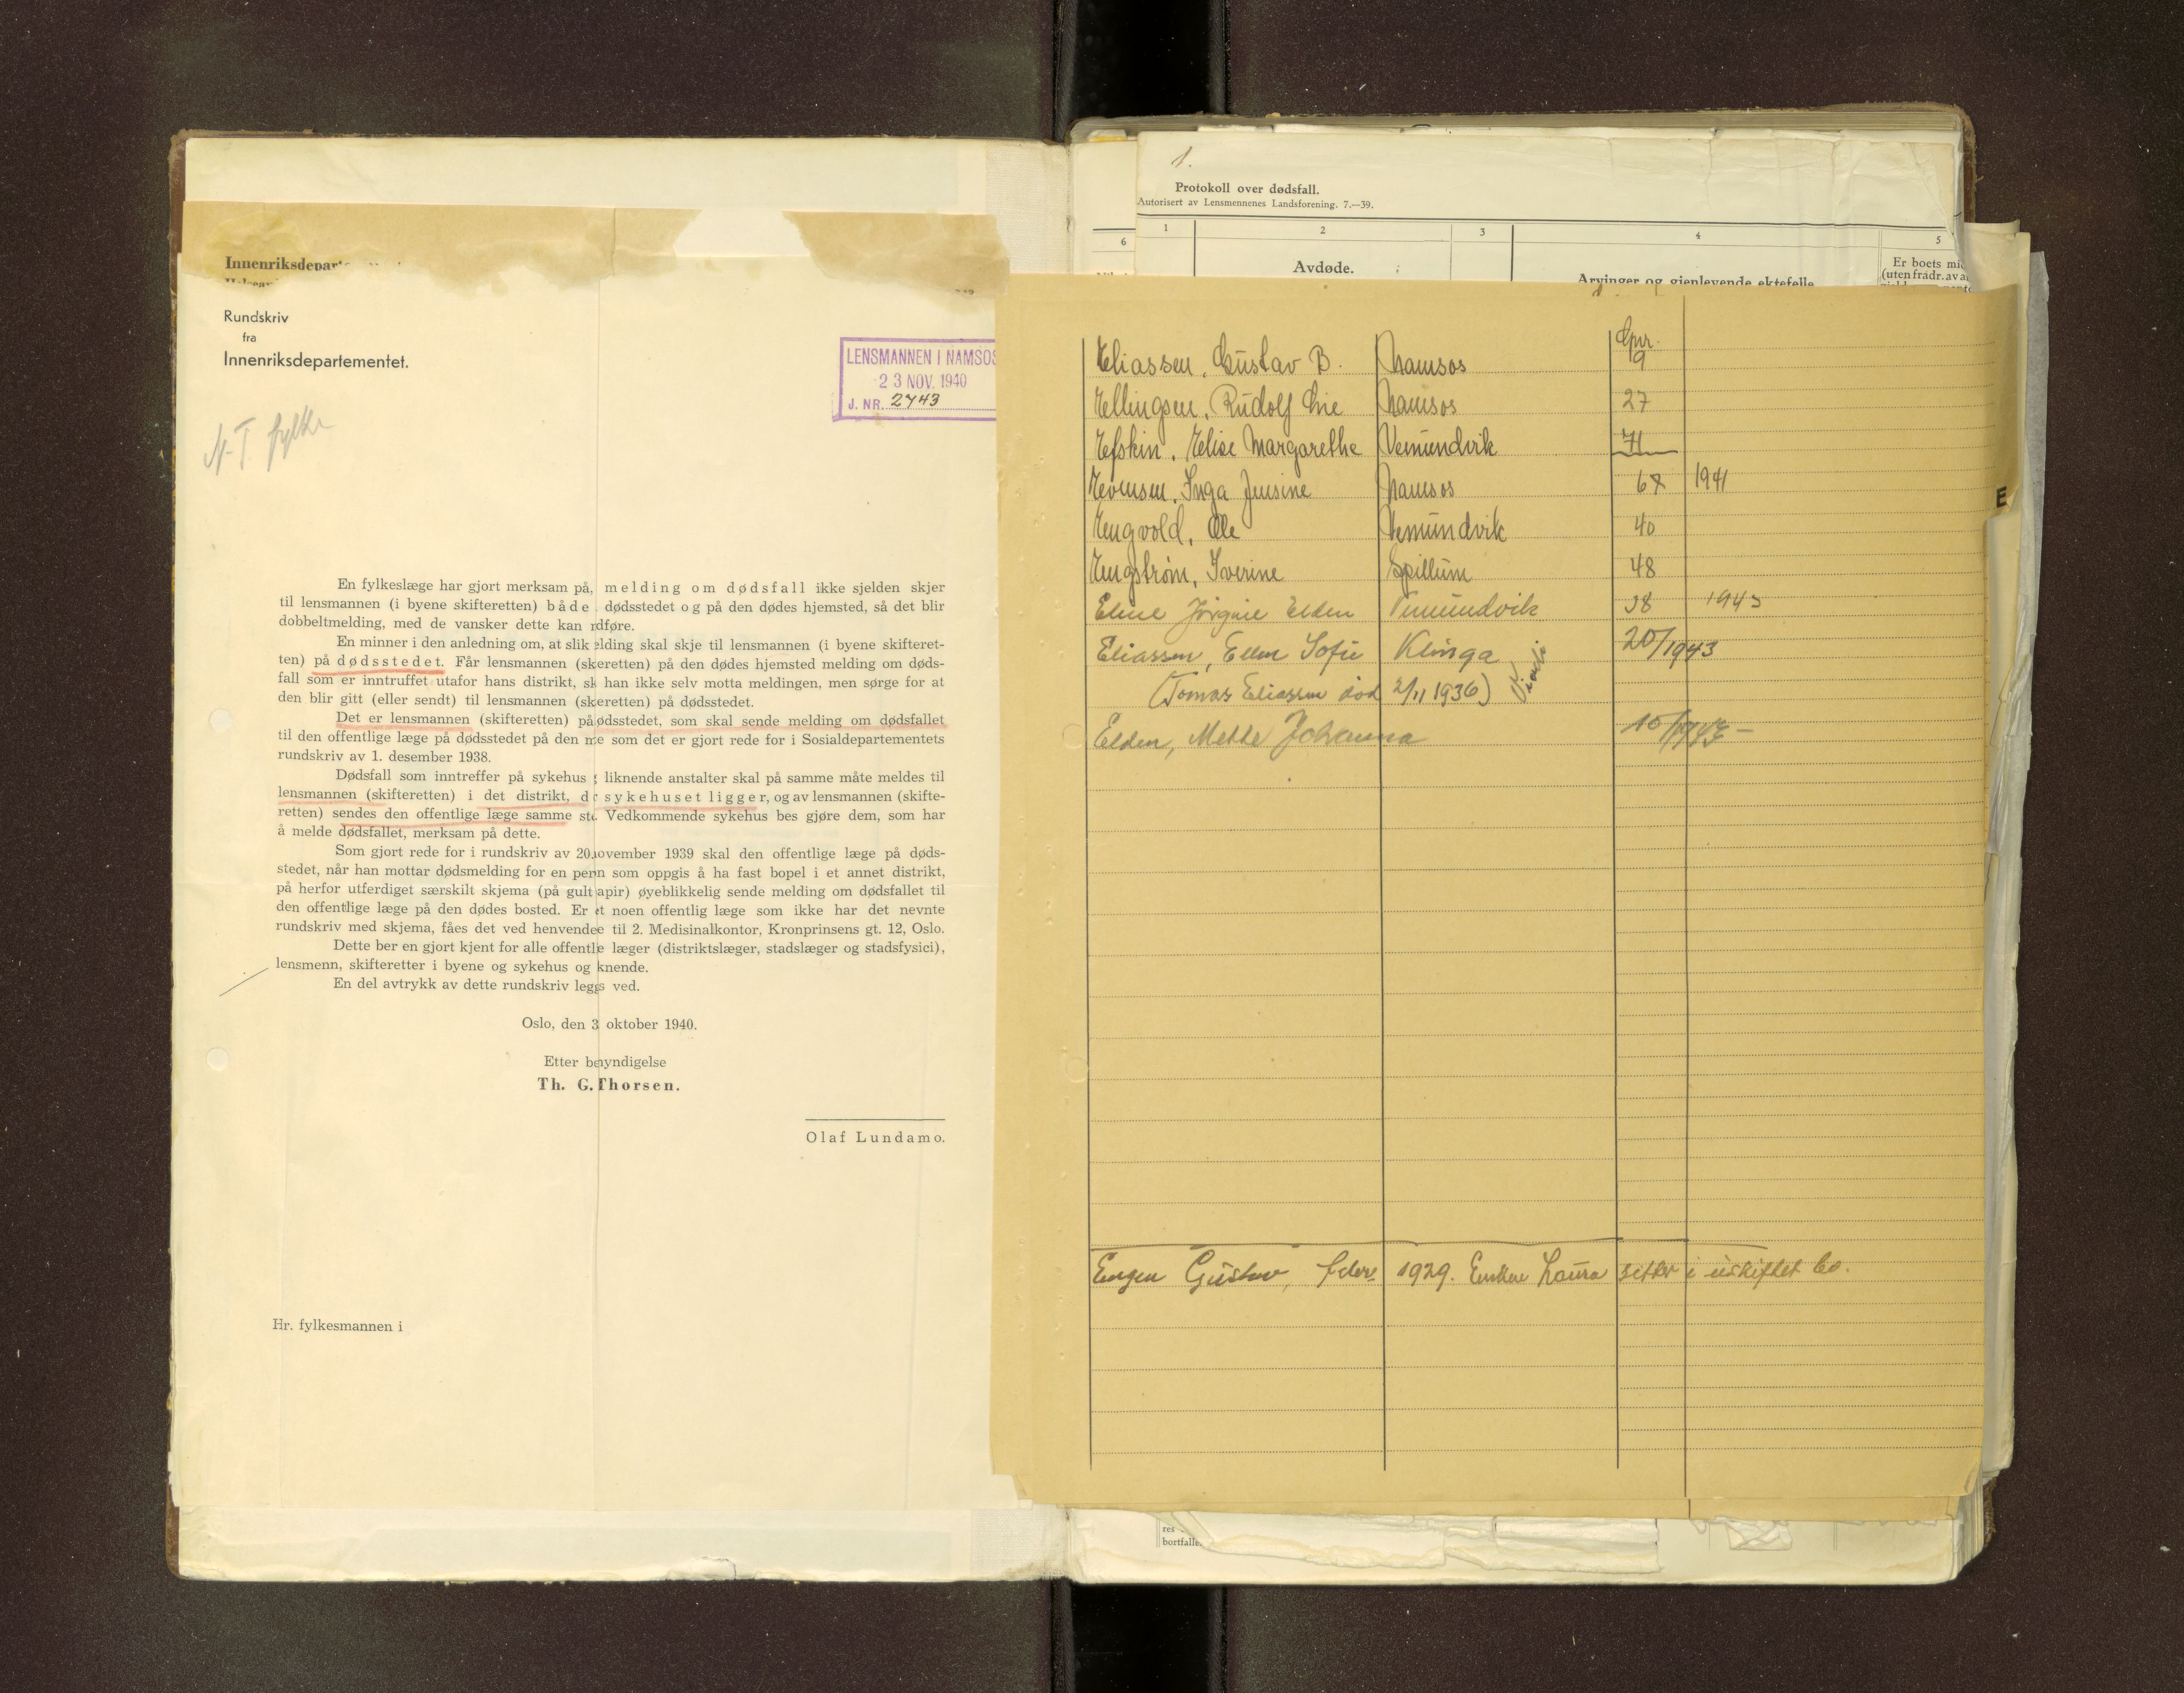 Innenriksdepart
Rundskriv
fra
Innenriksdepartementet.
LENSMANNEN I NAMSOS
23 NOV. 1940
J. NR. 2743
N-T. fylke
En fylkeslæge har gjort merksam på, melding om dødsfall ikke sjelden skjer
til lensmannen (i byene skifteretten) både dødsstedet og på den dødes hjemsted, så det blir
dobbeltmelding, med de vansker dette kan dføre.
En minner i den anledning om, at slik elding skal skje til lensmannen (i byene skifteret-
ten) på dødsstedet. Får lensmannen (skeretten) på den dødes hjemsted melding om døds-
fall som er inntruffet utafor hans distrikt, sk han ikke selv motta meldingen, men sørge for at
den blir gitt (eller sendt) til lensmannen (skeretten) på dødsstedet.
Det er lensmannen (skifteretten) på ødsstedet, som skal sende melding om dødsfallet
til den offentlige læge på dødsstedet på den me som det er gjort rede for i Sosialdepartementets
rundskriv av 1. desember 1938.
Dødsfall som inntreffer på sykehus g liknende anstalter skal på samme måte meldes til
lensmannen (skifteretten) i det distrikt, dr sykehuset ligger, og av lensmannen (skifte-
retten) sendes den offentlige læge samme ste. Vedkommende sykehus bes gjøre dem, som har
å melde dødsfallet, merksam på dette.
Som gjort rede for i rundskriv av 20 november 1939 skal den offentlige læge på døds-
stedet, når han mottar dødsmelding for en pern som oppgis å ha fast bopel i et annet distrikt,
på herfor utferdiget særskilt skjema (på gult apir) øyeblikkelig sende melding om dødsfallet til
den offentlige læge på den dødes bosted. Er et noen offentlig læge som ikke har det nevnte
rundskriv med skjema, fåes det ved henvendee til 2. Medisinalkontor, Kronprinsens gt. 12, Oslo.
Dette ber en gjort kjent for alle offentle læger (distriktslæger, stadslæger og stadsfysici),
lensmenn, skifteretter i byene og sykehus og knende.
En del avtrykk av dette rundskriv leggs ved.
Oslo, den 3 oktober 1940.
Etter bemyndigelse
Th. G. Thorsen.
Olaf Lundamo.
Hr. fylkesmannen i
1.
Protokoll over dødsfall.
Autorisert av Lensmennenes Landsforening. 7.—39.
6 1 2 3 4 5
Avdøde.
Arvinger og gjenlevende ektefelle
Er boets mi
(uten fradr. av a
Gnr.
Eliassen, Gustav B. Namsos 9
Ellingsen, Rudolf Namsos 27
Efskin, Elise Margarethe Vemundvik 71
Evensen, Inga Jensine Namsos 67 1941
Engvold, Ole Vemundvik 40
Engstrøm, Iverine Spillum 48
Eline Jørgine Elden Vemundvik 38 1943
Eliassen, Ellen Sofie Klinga 20/1943
(Tomas Eliassen død 2/11 1936)
Elden, Mette Johanna
Engen Gustav, febr 1929. Enken Laura sitter i uskiftet bo.
E
res
bortfalle